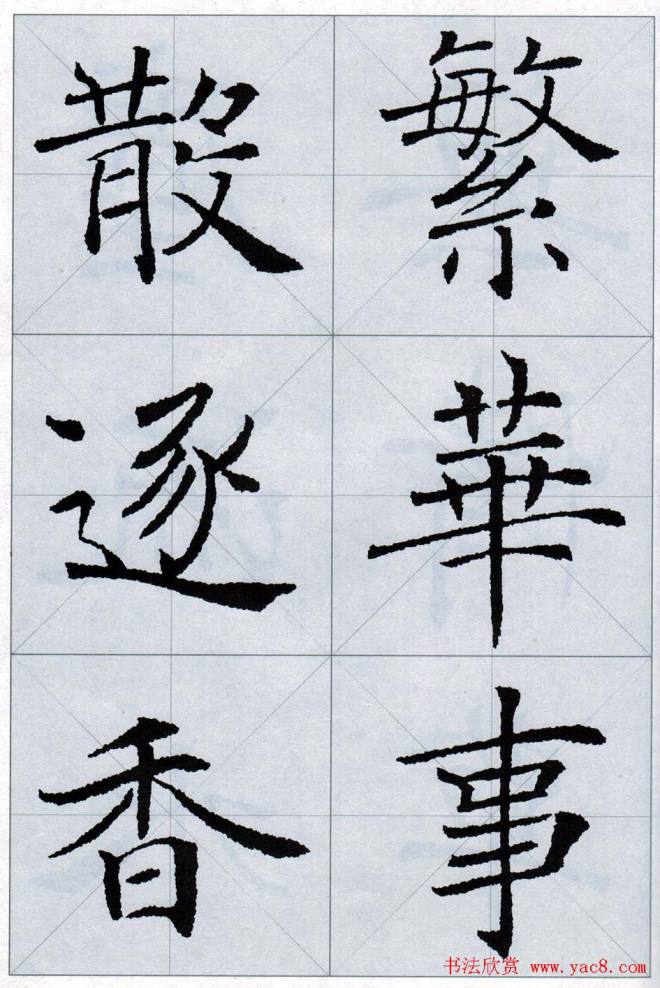 繁華事
散逐香
书法欣赏 www.yac8.com